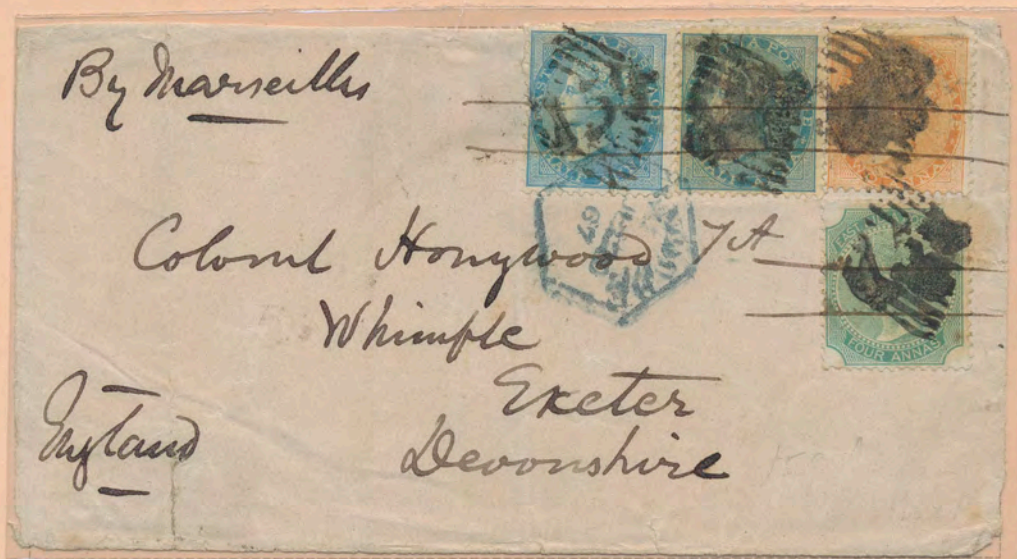 By Marseilles
Colonel Honywood
Whimple
Exeter
Devonshire
England
FOUR ANNAS
67